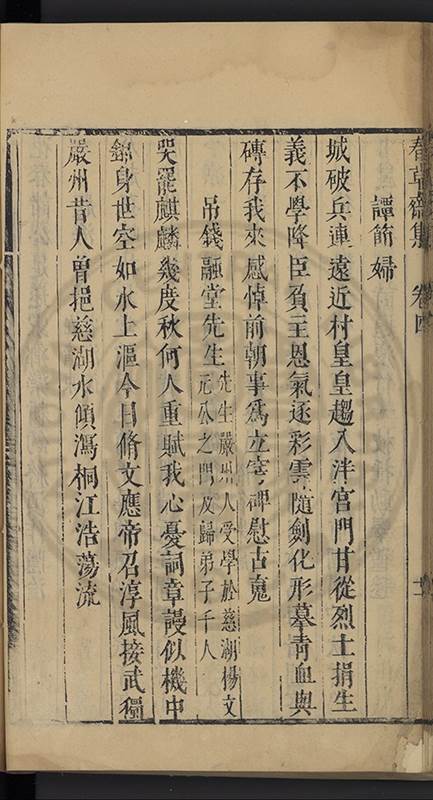 春草齋集 卷四
譚節婦
城破兵連遠近村皇皇趨入泮宮門甘從烈士捐生
義不學降臣負主恩氣逐彩雲隨劍化形摹青血與
磚存我來感悼前朝事爲立穹碑慰古䰟
弔錢融堂先生
先生嚴州人受學於慈湖楊文
元公之門及歸弟子千人
哭罷麒麟幾度秋何人重賦我心憂詞章謾似機中
錦身世空如水上漚今日脩文應帝召淳風接武獨
嚴州昔人曾挹慈湖水傾瀉桐江浩蕩流